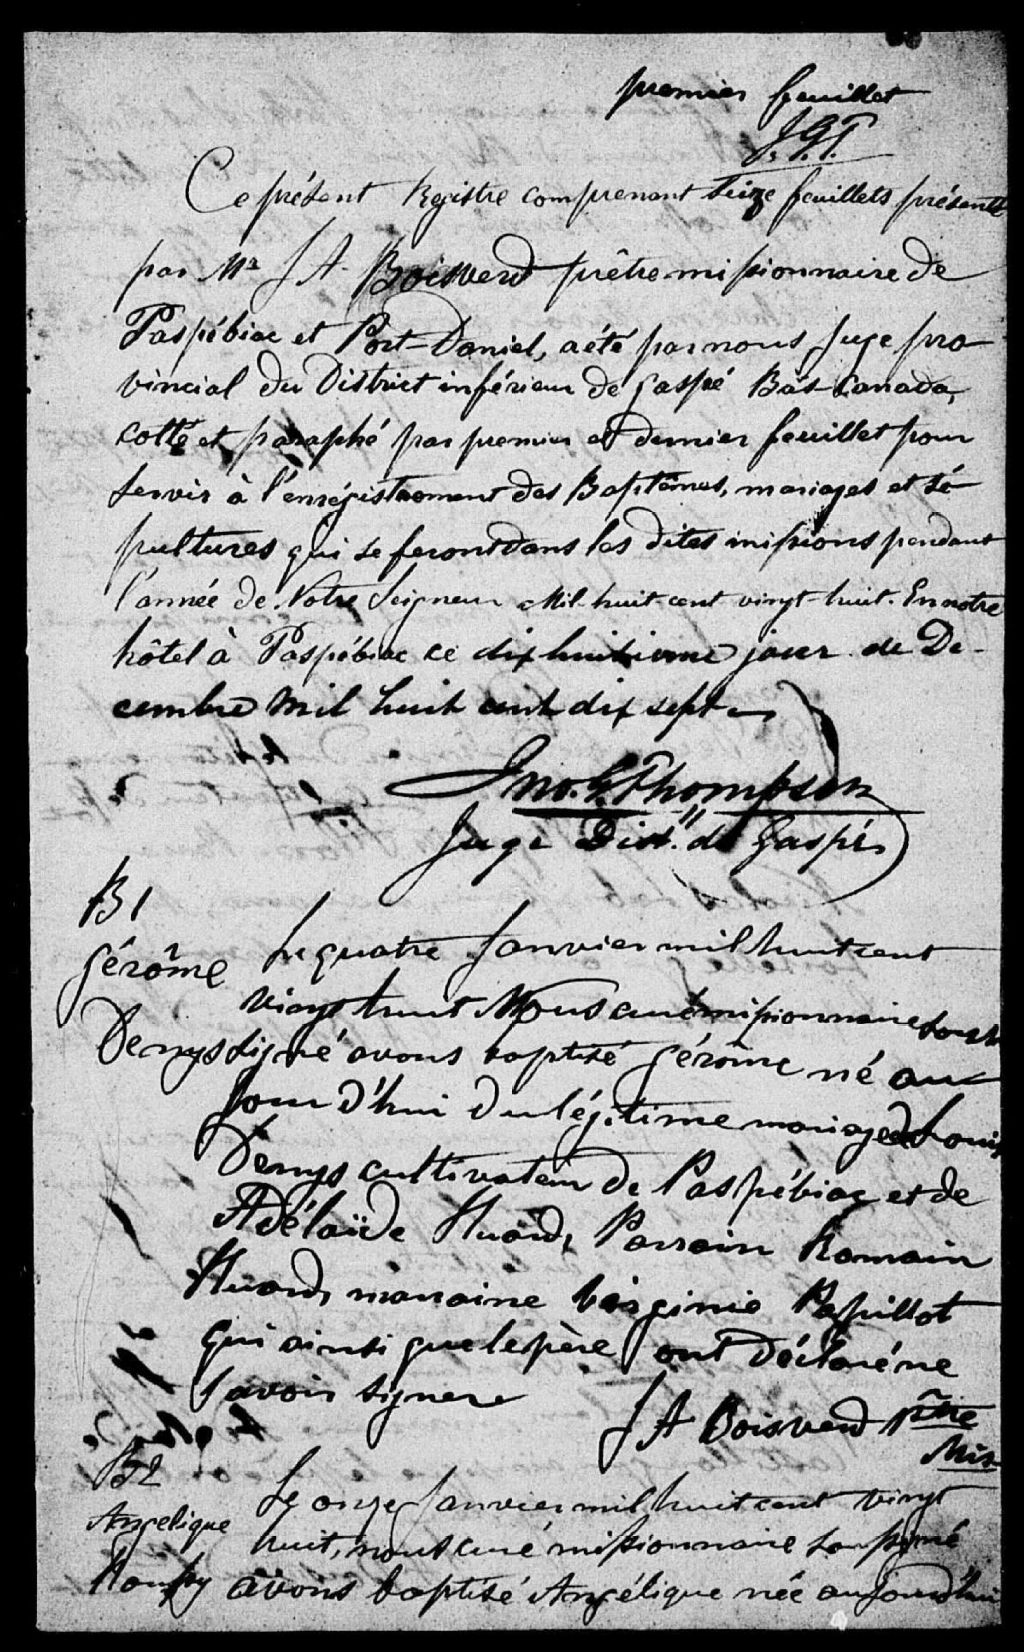 premier feuillet
J. G. T.
Ce présent Registre comprenant seize feuillets présenté
par Mr J A. Boisverd prêtre missionnaire de
Paspébiac et Port-Daniel, a été par nous Juge pro
vincial du District inférieur de Gaspé Bas Canada,
cotté et paraphé par premier et dernier feuillet pour
servir à l'enrégistrement des Baptêmes, mariages et sé
pultures qui se feront dans les dites missions pendant
l'année de Notre Seigneur Mil-huit cent vingt-huit. En notre
hôtel à Paspébiac ce dixhuitieme jour de De-
cembre Mil huit cent dix sept
Jno. G. Thompson
Juge Dist. de Gaspé
B 1
Gérôme
Denys
Le quatre Janvier mil huit cent
vingt huit Nous curé missionnaire sous
signé avons baptisé Gérôme né au
jourd'hui du légitime mariage de Louis
Denys cultivateur de Paspébiac et de
Adélaïde Huard, Parrain Romain
Huard, marraine Virginie Papillot
qui ainsi que le père ont déclaré ne
savoir signer
J A Boisverd ptre
Mis
B 2
Angelique
Le onze Janvier mil huit cent vingt
huit, nous curé missionnaire soussigné
avons baptisé Angélique née aujourd'hui